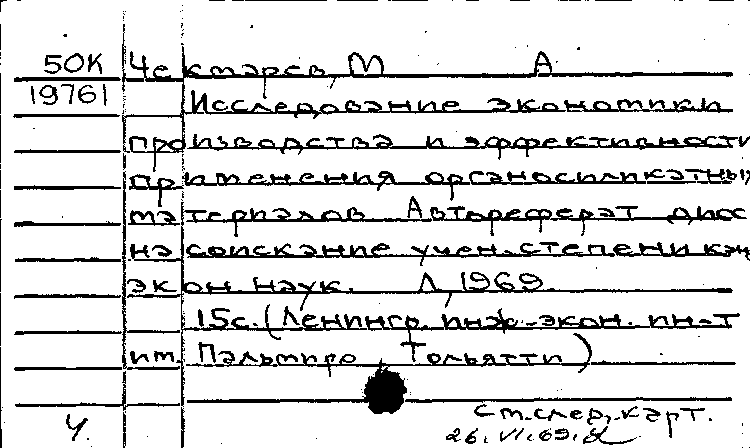 50К Чектарев, М А
19761 Исследование экономики
производства и эффективности
применения органосиликатных
материалов. Автореферат дисс
на соискание учен. степени кан
экон. наук. Л, 1969.
15с. (Ленингр. инж-экон. ин-т
им. Пальмиро Тольятти)
См.след.карт.
Ч. 26.VI.69.